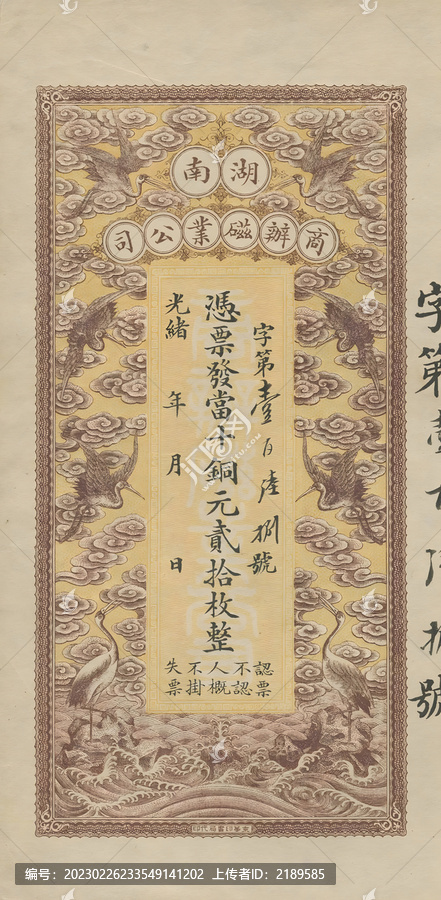 湖南
商辦磁業公司
字第壹百陸捌號
憑票發當十銅元貳拾枚整
光緒 年 月 日
認票不認人概不掛失票
字第壹百陸捌號
编号：20230226233549141202 上传者ID：2189585